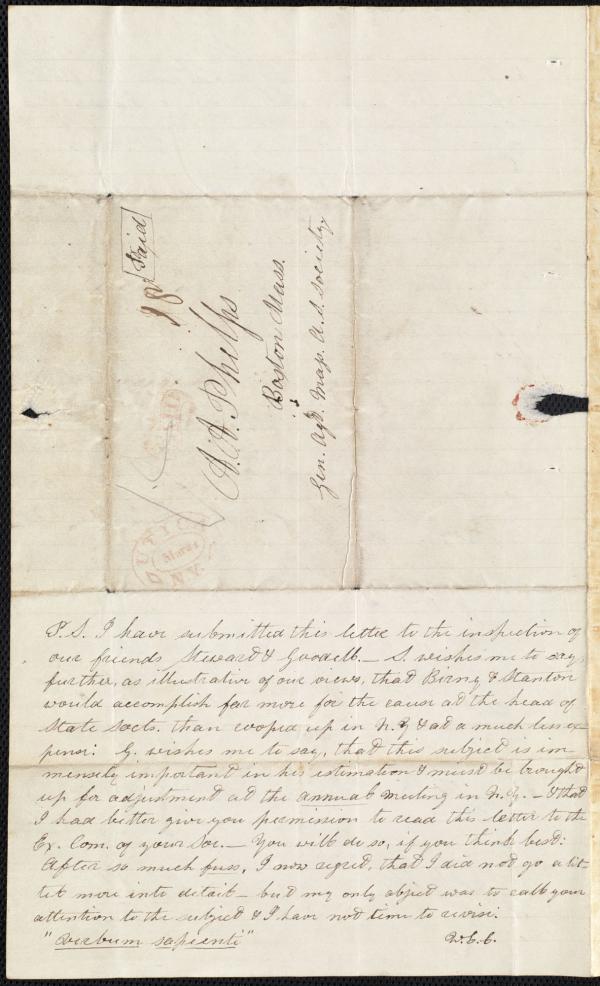 Paid
18¾
A. A. Phelps
Boston Mass.
Gen. Agt. Mass. A. S. Society
PAID
UTICA
N.Y.
P.S. I have submitted this letter to the inspection of
our friends Steward & Goodell. — S. wishes me to say
further, as illustrative of our views, that Birny & Stanton
would accomplish far more for the cause at the head of
State Socts. than cooped up in N.Y & at a much less ex-
pense: G. wishes me to say, that this subject is im-
mensely important in his estimation & must be brought
up for adjustment at the annual meeting in N.Y. — & that
I had better give you permission to read this letter to the
Ex. Com. of your Soc. — You will do so, if you think best:
After so much fuss, I now regret, that I did not go a lit-
tle more into detail — but my only object was to call your
attention to the subject & I have not time to revise.
"Verbum sapienti"
W.C.C.